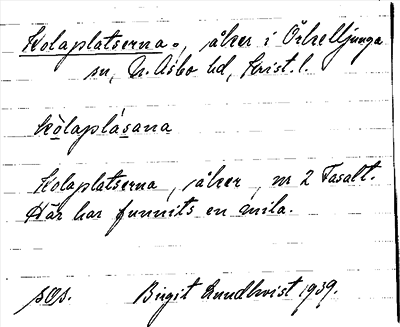 Kolaplatserna, åker i Örkelljunga
sn, N. Åsbo hd, Krist. l.
kòlaplásana
Kolaplatserna, åker, nr 2 Fasalt.
Här har funnits en mila.
Birgit Lundkvist 1939.